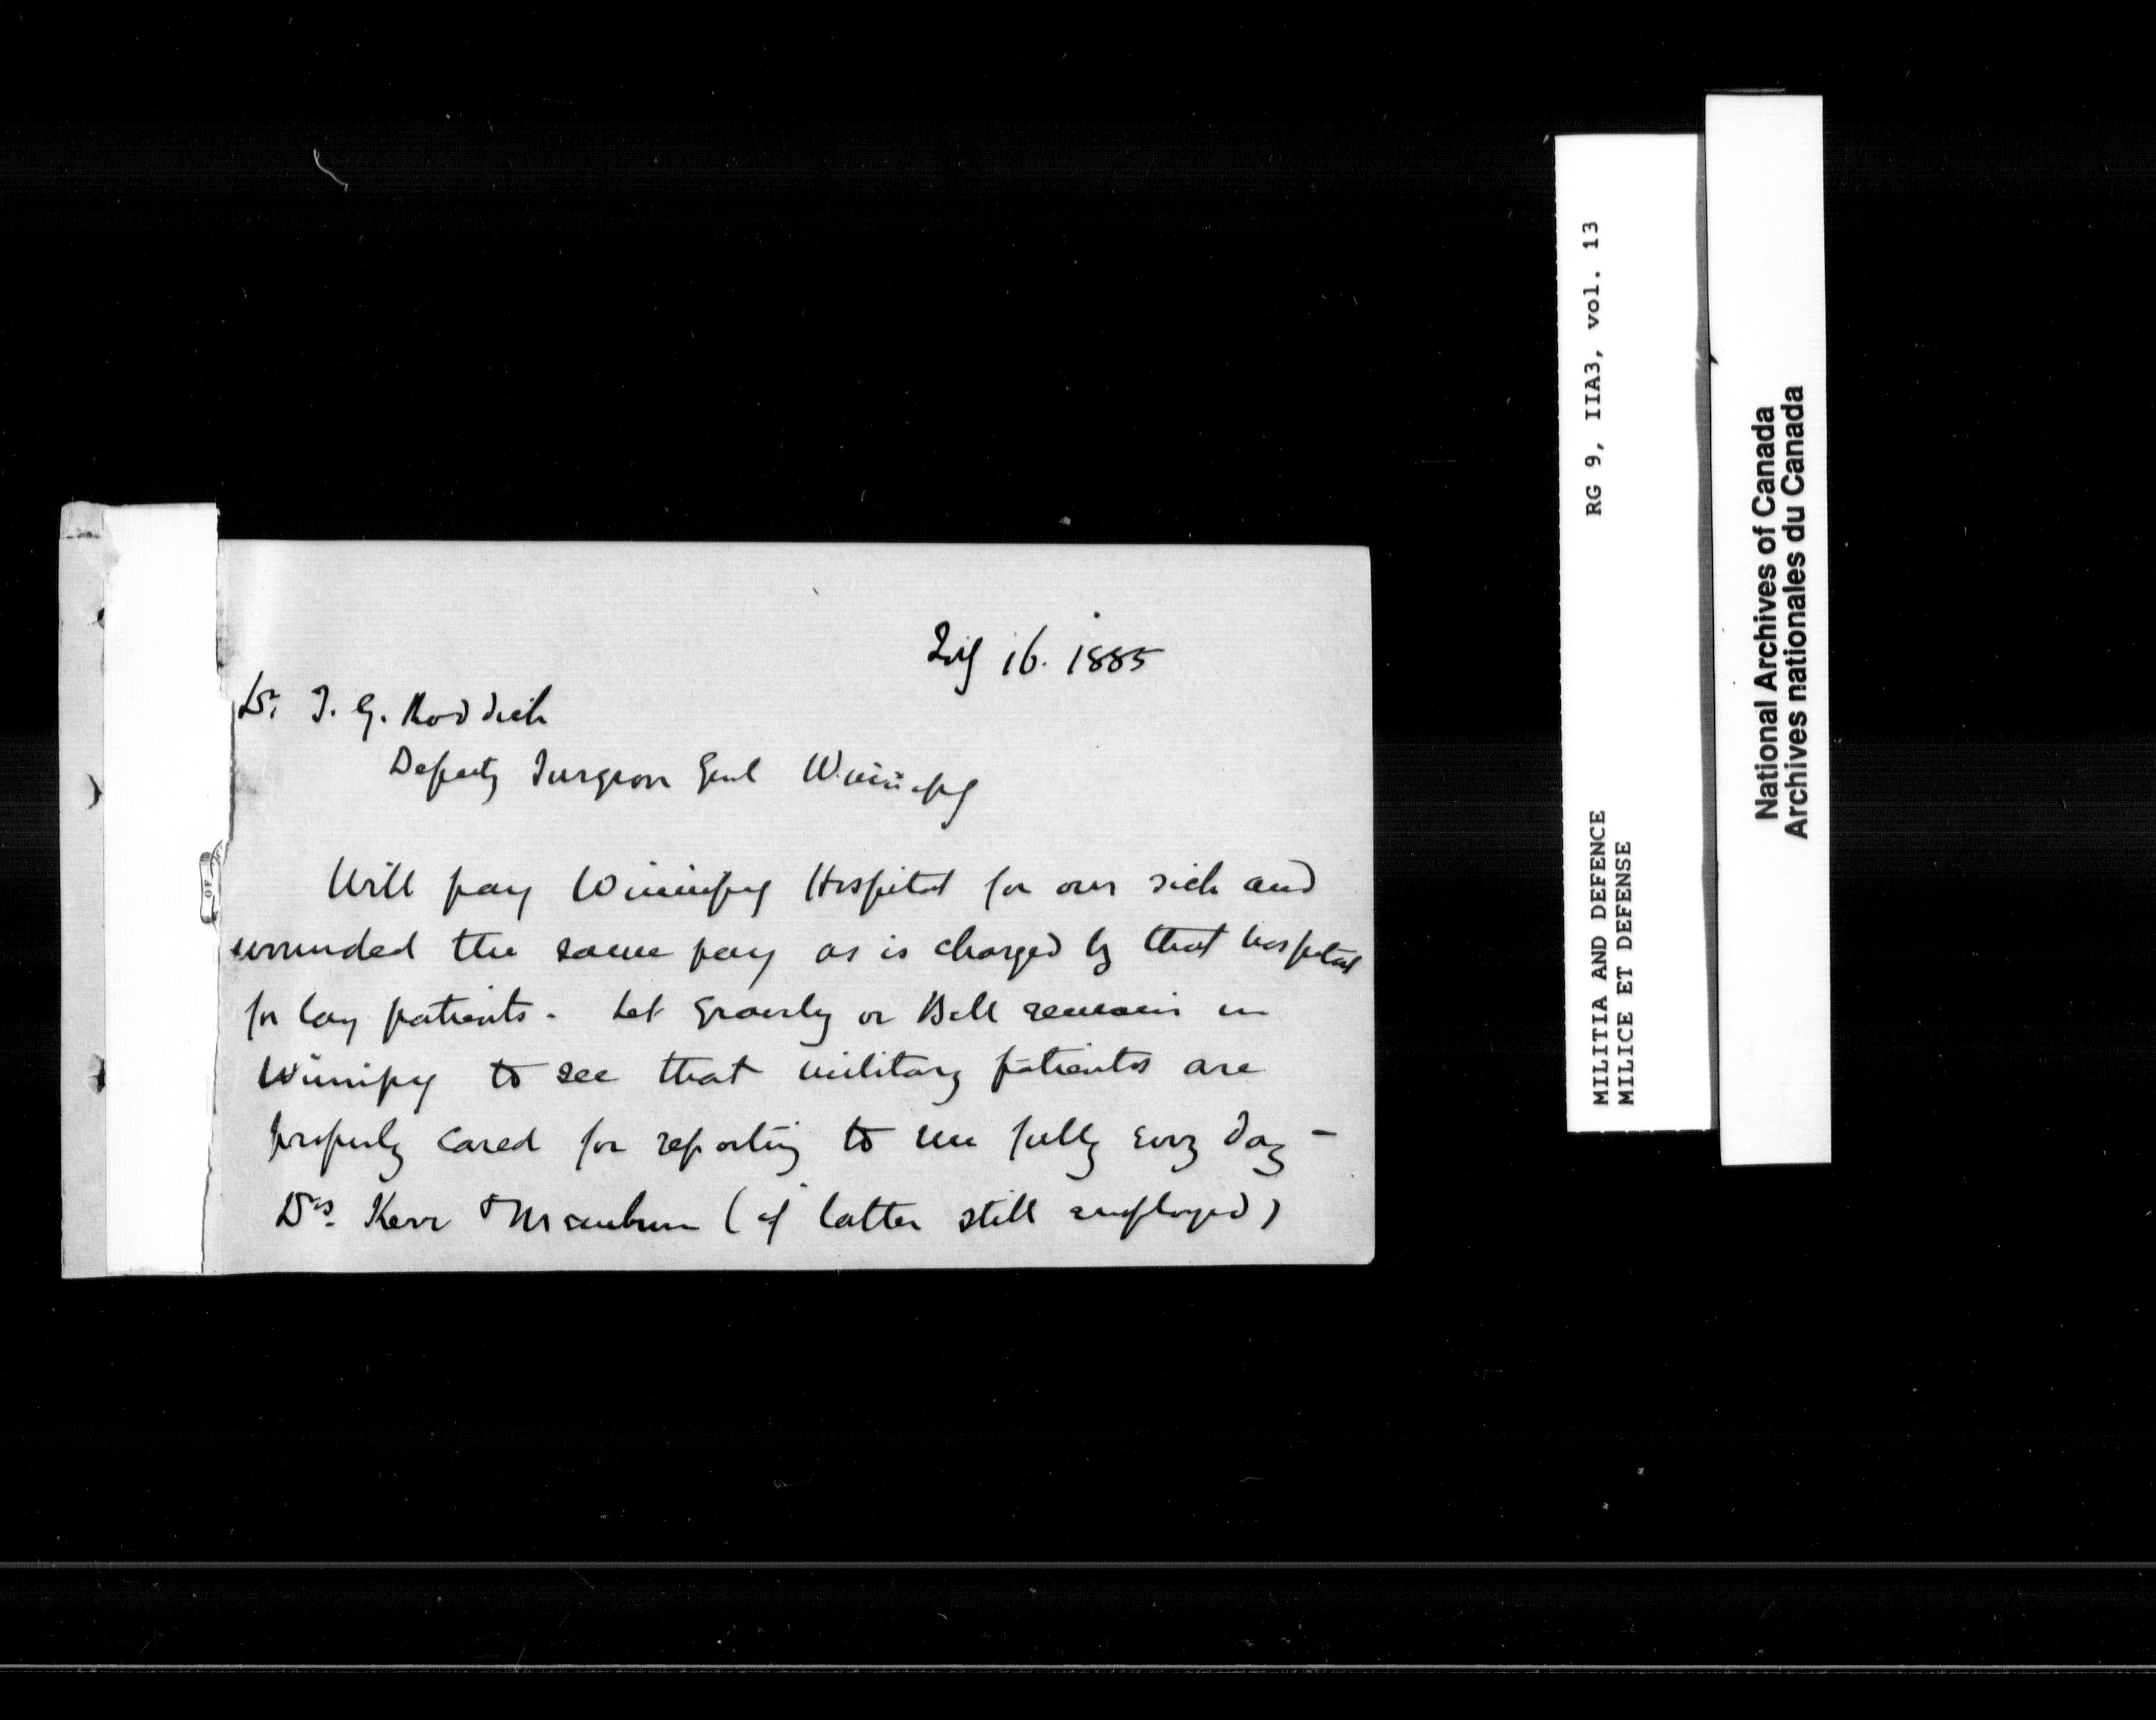 July 16. 1885
Dr. T. G. Roddick
Deputy Surgeon Genl Winnipeg
Will pay Winnipeg Hospital for our sick and
wounded the same pay as is charged by that hospital
for lay patients. Let Gravely or Bell remain in
Winnipeg to see that military patients are
properly cared for reporting to me fully every day –
Drs. Kerr & (if latter still employed)
OF
RG 9, IIA3, vol. 13
MILITIA AND DEFENCE
MILICE ET DEFENSE
National Archives of Canada
Archives nationales du Canada